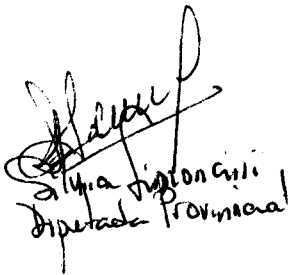 Silvia Simoncini
Diputada Provincial